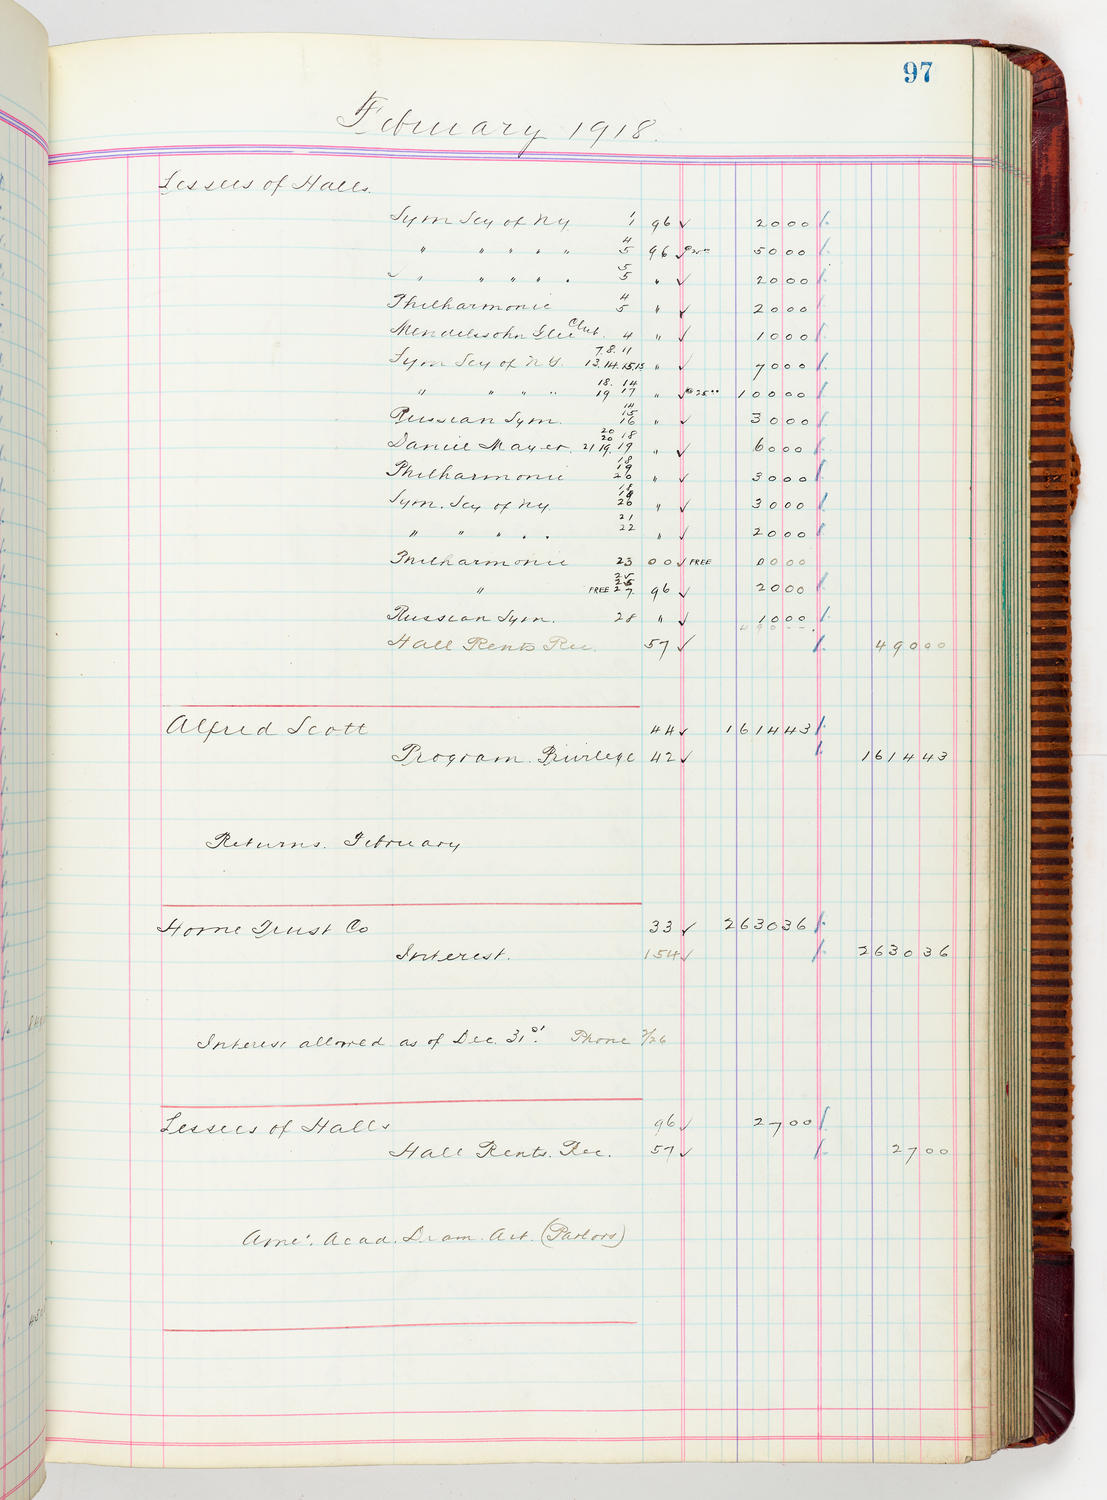 97
February 1918.
Lessees of Halls.
Sym Scy of NY 1/1 96 ✓ 2000
" " " " " 4 5 96 ✓ 5000
" " " " . 5 5 " ✓ 2000
Philharmonic 4 5 " ✓ 2000
Mendelssohn Glee Club. 4 " ✓ 1000
Sym Scy of N.Y. 7.8.11 13.14.15.15 " ✓ 7000
" " " " 18. 14 19 17 " ✓ 10000
Russian Sym. 14 15 16 " ✓ 3000
Daniel Mayer. 20 20 18 21 19. 19 " ✓ 6000
Philharmonic 18 19 20 " ✓ 3000
Sym. Scy of NY. 18 19 20 " ✓ 3000
" " " . . 21 22 " ✓ 2000
Philharmonic 23 00 ✓ FREE 0000
" FREE 27 96 ✓ 2000
Russian Sym. 28 " ✓ 1000
Hall Rents Rec. 57 ✓ 49000
Alfred Scott 44 ✓ 161443
Program. Privilege 42 ✓ 161443
Returns. February
Home Trust Co 33 ✓ 263036
Interest. 154 ✓ 263036
Interest allowed as of Dec. 31st. Phone 2/26
Lessees of Halls 96 ✓ 2700
Hall Rents. Rec. 57 ✓ 2700
Ame'. Acad. Dram. Art. (Parlors)